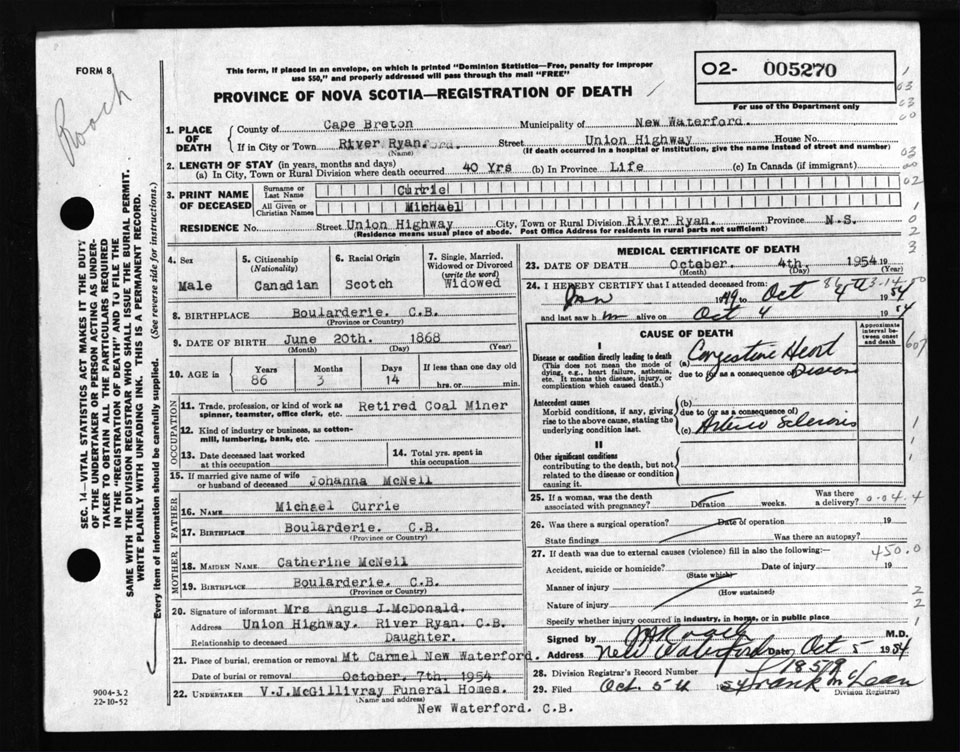 FORM 8
Roach
This form, if placed in an envelope, on which is printed "Dominion Statistics—Free, penalty for improper
use $50," and properly addressed will pass through the mail "FREE"
02- 005270
For use of the Department only
PROVINCE OF NOVA SCOTIA—REGISTRATION OF DEATH
1. PLACE OF DEATH
County of Cape Breton Municipality of New Waterford.
If in City or Town River Ryan. Street Union Highway House No.
(Name) (If death occurred in a hospital or institution, give the name instead of street and number)
2. LENGTH OF STAY (in years, months and days)
(a) In City, Town or Rural Division where death occurred 40 Yrs (b) In Province Life (c) In Canada (if immigrant)
3. PRINT NAME OF DECEASED
Surname or Last Name Currie
All Given or Christian Names Michael
RESIDENCE No. Street Union Highway City, Town or Rural Division River Ryan. Province N.S.
(Residence means usual place of abode. Post Office Address for residents in rural parts not sufficient)
4. Sex Male
5. Citizenship (Nationality) Canadian
6. Racial Origin Scotch
7. Single, Married, Widowed or Divorced (write the word) Widowed
8. BIRTHPLACE Boularderie. C.B.
(Province or Country)
9. DATE OF BIRTH June 20th. 1868
(Month) (Day) (Year)
10. AGE in Years 86 Months 3 Days 14 If less than one day old
hrs. or min.
OCCUPATION
11. Trade, profession, or kind of work as spinner, teamster, office clerk, etc. Retired Coal Miner
12. Kind of industry or business, as cotton-mill, lumbering, bank, etc.
13. Date deceased last worked at this occupation
14. Total yrs. spent in this occupation
15. If married give name of wife or husband of deceased Johanna McNeil
FATHER
16. NAME Michael Currie
17. BIRTHPLACE Boularderie. C.B.
(Province or Country)
MOTHER
18. MAIDEN NAME Catherine McNeil
19. BIRTHPLACE Boularderie. C.B.
(Province or Country)
20. Signature of informant Mrs Angus J.McDonald.
Address Union Highway. River Ryan. C.B.
Relationship to deceased Daughter.
21. Place of burial, cremation or removal Mt Carmel New Waterford.
Date of burial or removal October, 7th. 1954
22. UNDERTAKER V.J.McGillivray Funeral Homes.
(Name and address)
New Waterford. C.B.
MEDICAL CERTIFICATE OF DEATH
23. DATE OF DEATH October. 4th. 1954 19
(Month) (Day) (Year)
24. I HEREBY CERTIFY that I attended deceased from: 86-3-14
Jan 1949 to Oct 4th 1954
and last saw h m alive on Oct 4 1954
CAUSE OF DEATH
Approximate interval between onset and death
I
Disease or condition directly leading to death
(This does not mean the mode of dying, e.g., heart failure, asthenia, etc. It means the disease, injury, or complication which caused death.)
(a) Congestive Heart
due to (or as a consequence of) Disease
Antecedent causes
Morbid conditions, if any, giving rise to the above cause, stating the underlying condition last.
(b)
due to (or as a consequence of)
(c) Arterio Sclerosis
II
Other significant conditions
contributing to the death, but not related to the disease or condition causing it.
25. If a woman, was the death associated with pregnancy? Duration weeks. Was there a delivery?
26. Was there a surgical operation? Date of operation 19
State findings Was there an autopsy?
27. If death was due to external causes (violence) fill in also the following:—
450.0
Accident, suicide or homicide? Date of injury 19
(State which)
Manner of injury
(How sustained)
Nature of injury
Specify whether injury occurred in industry, in home, or in public place
Signed by J A Roach M.D.
Address New Waterford Date Oct 5 1954
28. Division Registrar's Record Number 1857
29. Filed Oct. 5th 1954 Frank McLean
Division Registrar)
SEC. 14—VITAL STATISTICS ACT MAKES IT THE DUTY
OF THE UNDERTAKER OR PERSON ACTING AS UNDER-
TAKER TO OBTAIN ALL THE PARTICULARS REQUIRED
IN THE "REGISTRATION OF DEATH" AND TO FILE THE
SAME WITH THE DIVISION REGISTRAR WHO SHALL ISSUE THE BURIAL PERMIT.
WRITE PLAINLY WITH UNFADING INK. THIS IS A PERMANENT RECORD.
Every item of information should be carefully supplied. (See reverse side for instructions.)
9004-3.2
22-10-52